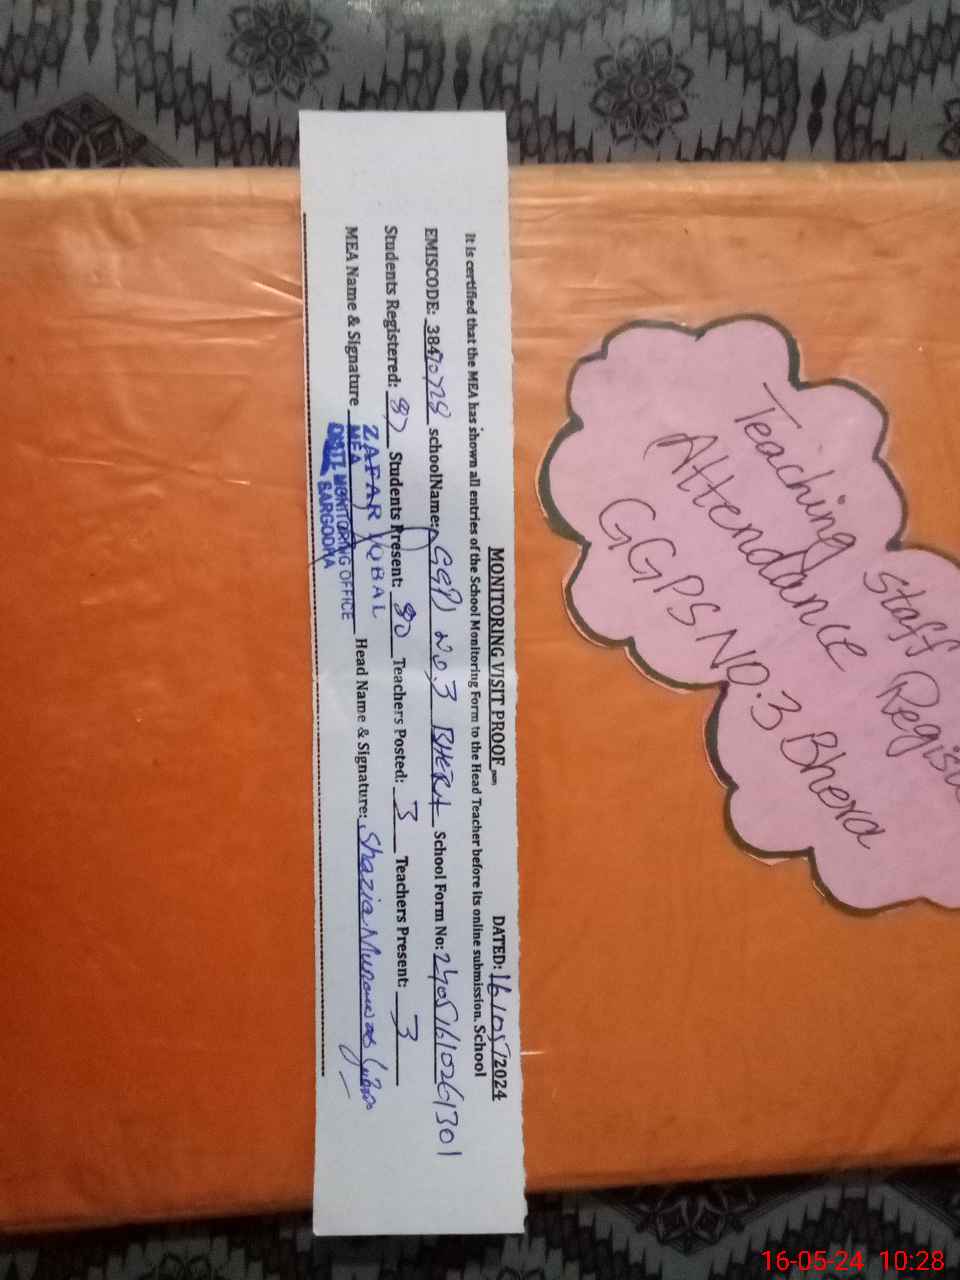 MONITORING VISIT PROOF DATED: 16/05/2024
It is certified that the MEA has shown all entries of the School Monitoring Form to the Head Teacher before its online submission. School
EMISCODE: 38470728 schoolName: GGPS No.3 BHERA School Form No: 24051610261301
Students Registered: 87 Students Present: 80 Teachers Posted: 3 Teachers Present: 3
MEA Name & Signature Head Name & Signature: Shazia
ZAFAR IQBAL
MEA
DISTT. MONITORING OFFICE
SARGODHA
Teaching Staff
Attendance
GGPS No.3 Bhera
16-05-24 10:28